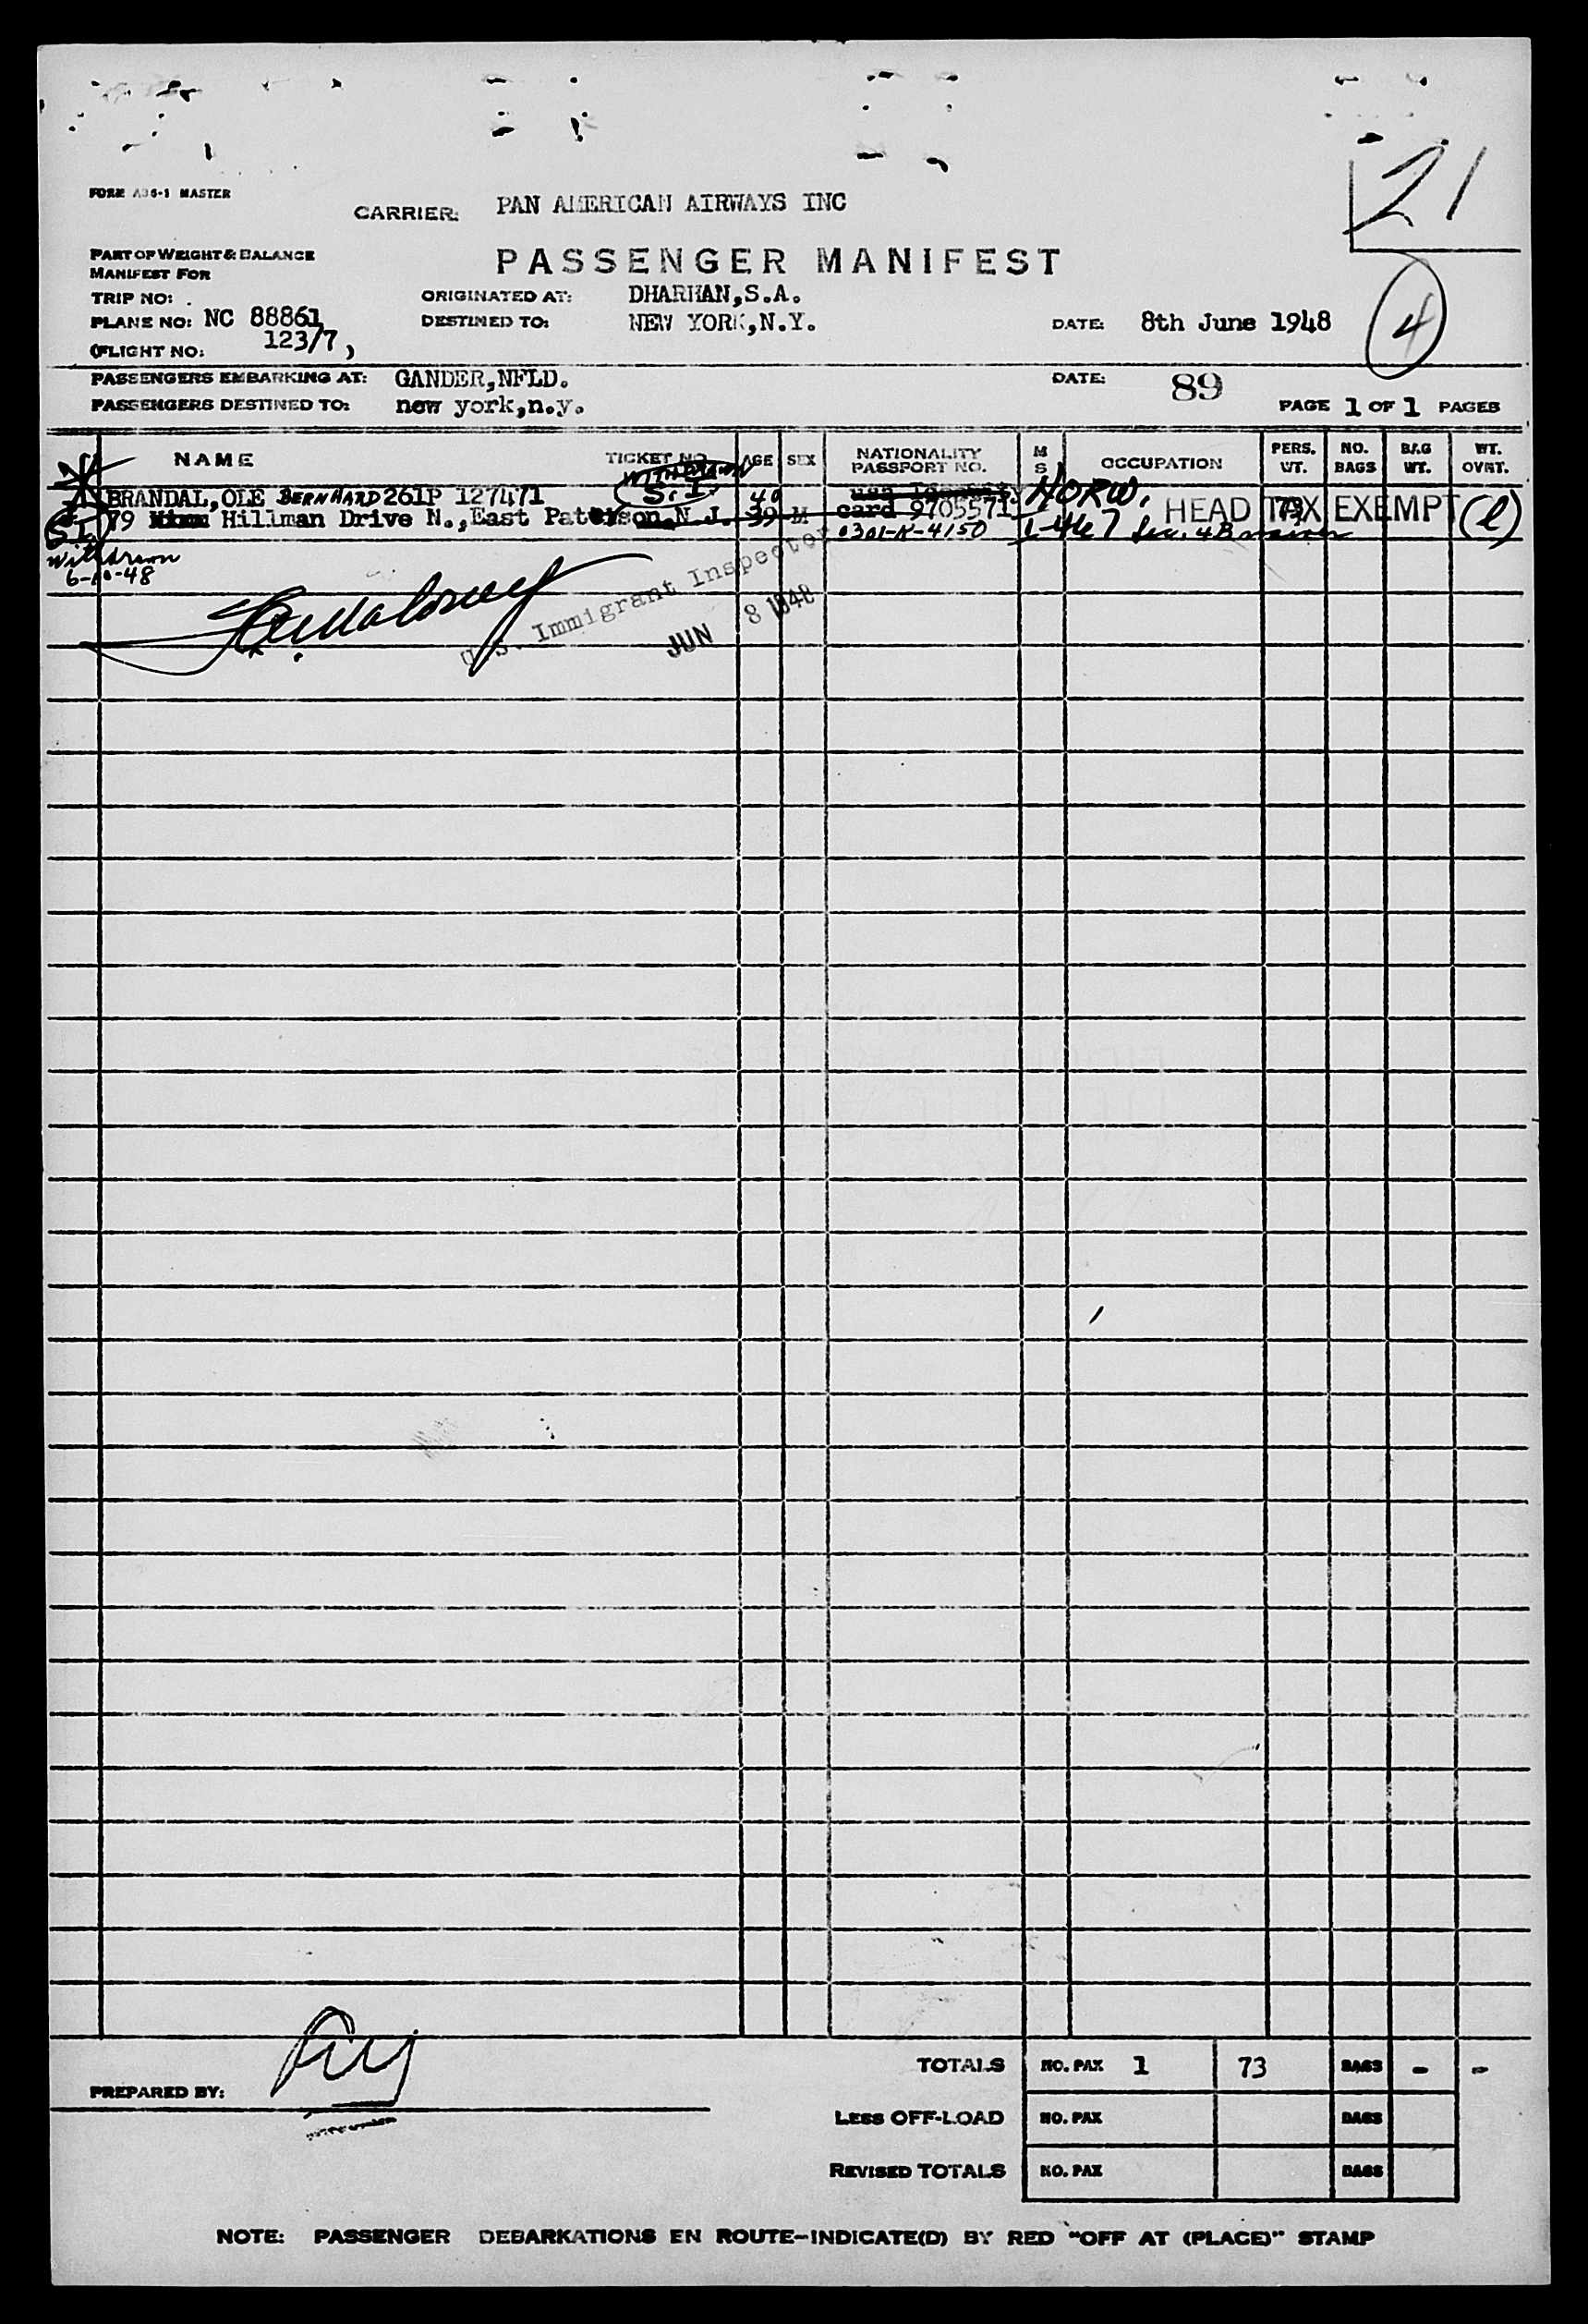 21
FORM A36-1 MASTER
CARRIER: PAN AMERICAN AIRWAYS INC
PART OF WEIGHT & BALANCE
MANIFEST FOR
PASSENGER MANIFEST
TRIP NO: .
ORIGINATED AT: DHARHAN,S.A.
PLANE NO: NC 88861
DESTINED TO: NEW YORK,N.Y.
DATE: 8th June 1948
4
(FLIGHT NO: 123/7 )
PASSENGERS EMBARKING AT: GANDER,NFLD.
DATE:
89
PASSENGERS DESTINED TO: new york,n.y.
PAGE 1 OF 1 PAGES
NAME TICKET NO. AGE SEX NATIONALITY PASSPORT NO. M S OCCUPATION PERS. WT. NO. BAGS BAG WT. WT. OVRT.
WITHDRAWN
S.I.
BRANDAL,OLE BERNHARD 261P 127471 40 usa NORW.
S.I. 79 Hillman Drive N.,East Paterson,N.J. 39 M card 9705571 HEAD TAX EXEMPT 73 (l)
0301-K-4150 1-467 Sec. 4B waiver
Withdrawn
6-10-48
U.S. Immigrant Inspector
JUN 8 1948
TOTALS NO. PAX 1 73 BAGS - -
PREPARED BY:
LESS OFF-LOAD NO. PAX BAGS
REVISED TOTALS NO. PAX BAGS
NOTE: PASSENGER DEBARKATIONS EN ROUTE-INDICATE(D) BY RED "OFF AT (PLACE)" STAMP